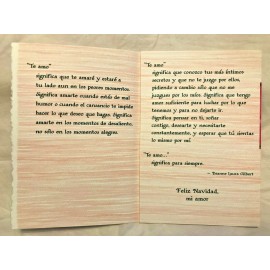 "Te amo"
significa que te amaré y estaré a
tu lado aun en los peores momentos.
Significa amarte cuando estás de mal
humor o cuando el cansancio te impida
hacer lo que deseo que hagas. Significa
amarte en los momentos de desaliento;
no sólo en los momentos alegres.
"Te amo"
significa que conozco tus más íntimos
secretos y que no te juzgo por ellos,
pidiendo a cambio sólo que no me
juzgues por los míos. Significa que tengo
amor suficiente para luchar por lo que
tenemos y para no dejarte ir.
Significa pensar en ti, soñar
contigo, desearte y necesitarte
constantemente, y esperar que tú sientas
lo mismo por mí.
"Te amo..."
significa para siempre.
– Deanne Laura Gilbert
Feliz Navidad,
mi amor